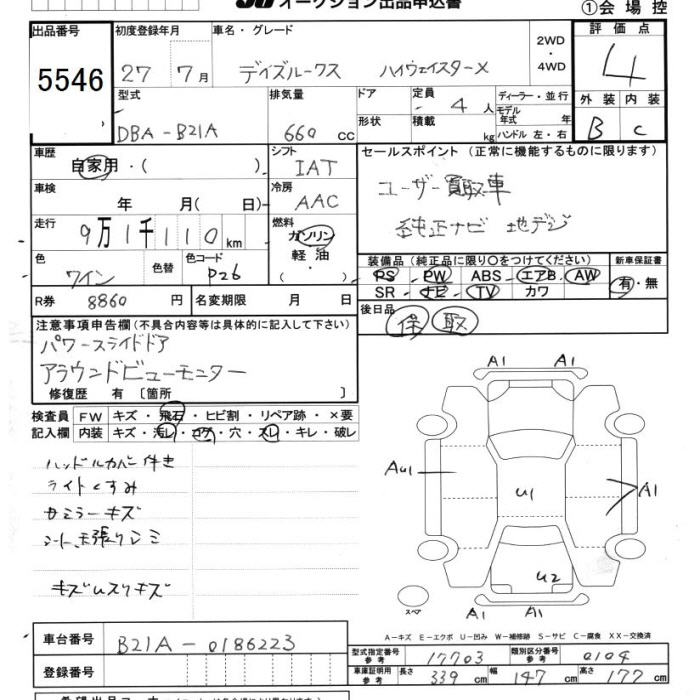 オークション出品申込書
①会場控
出品番号 5546
初度登録年月 27 7月
車名・グレード デイズルークス ハイウェイスターX
2WD・4WD
評価点 4
外装 B 内装 C
型式 DBA-B21A
排気量 660 CC
ドア 形状
定員 4人
積載 kg
ディーラー・並行
モデル年式 年
ハンドル 左・右
車歴 自家用・( )
シフト IAT
車検 年 月( 日)
冷房 AAC
走行 9万1千110km
燃料 ガソリン・軽油・( )
色 ワイン 色替 色コード P26
R券 8860円 名変期限 月 日
セールスポイント (正常に機能するものに限ります)
ユーザー買取車
純正ナビ 地デジ
装備品 (純正品に限り○をつけてください)
PS PW ABS エアB AW
SR ナビ TV カワ
新車保証書 有・無
後日品 保 取
注意事項申告欄(不具合内容等は具体的に記入して下さい)
パワースライドドア
アラウンドビューモニター
修復歴 有 〔箇所 〕
検査員記入欄
FW キズ・飛石・ヒビ割・リペア跡・×要
内装 キズ・汚れ・コゲ・穴・スレ・キレ・破レ
ハンドルカバー付き
ライトくすみ
シート
A1 A1
A1
U1
U2
A1 A1
スペア
A-キズ E-エクボ U-凹み W-補修跡 S-サビ C-腐食 XX-交換済
車台番号 B21A-0186223
登録番号
型式指定番号 参考 17703
類別区分番号 参考 0104
車庫証明用 参考 長さ 339cm 幅 147cm 高さ 177cm